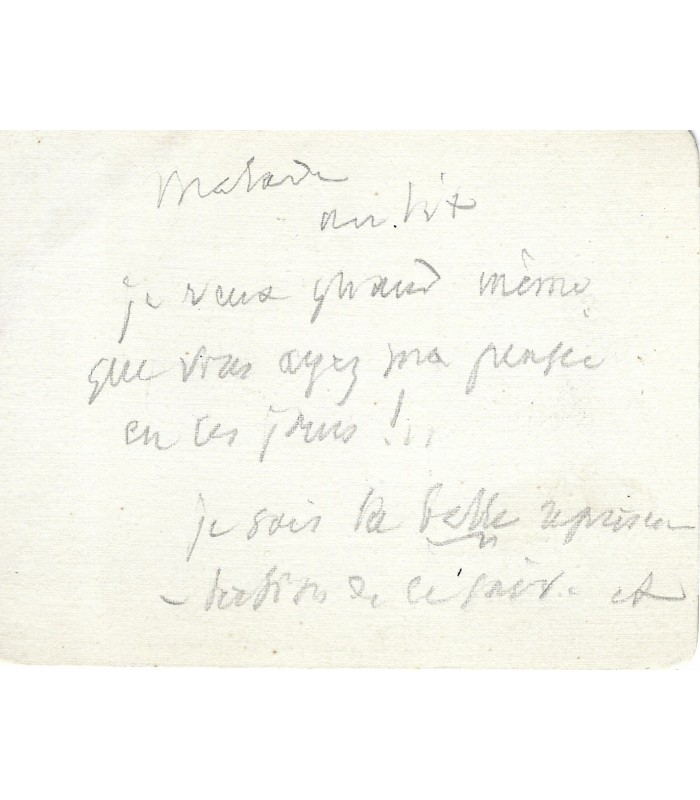 Malade
au lit
je veux quand même
que vous ayez ma pensée
en ces jours !..
je sais la belle représen
-tation de ce soir. et